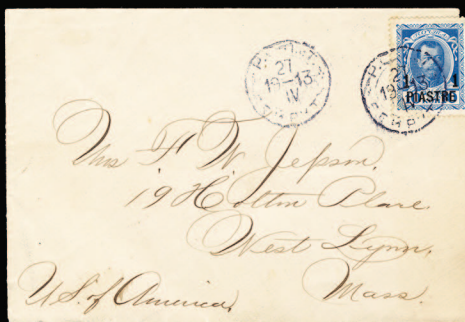 27
19-13
IV
27
19-13
1 1
PIASTRE
Mrs F W Jepson.
19 Holton Place.
West Lynn.
Mass.
U.S. of America.